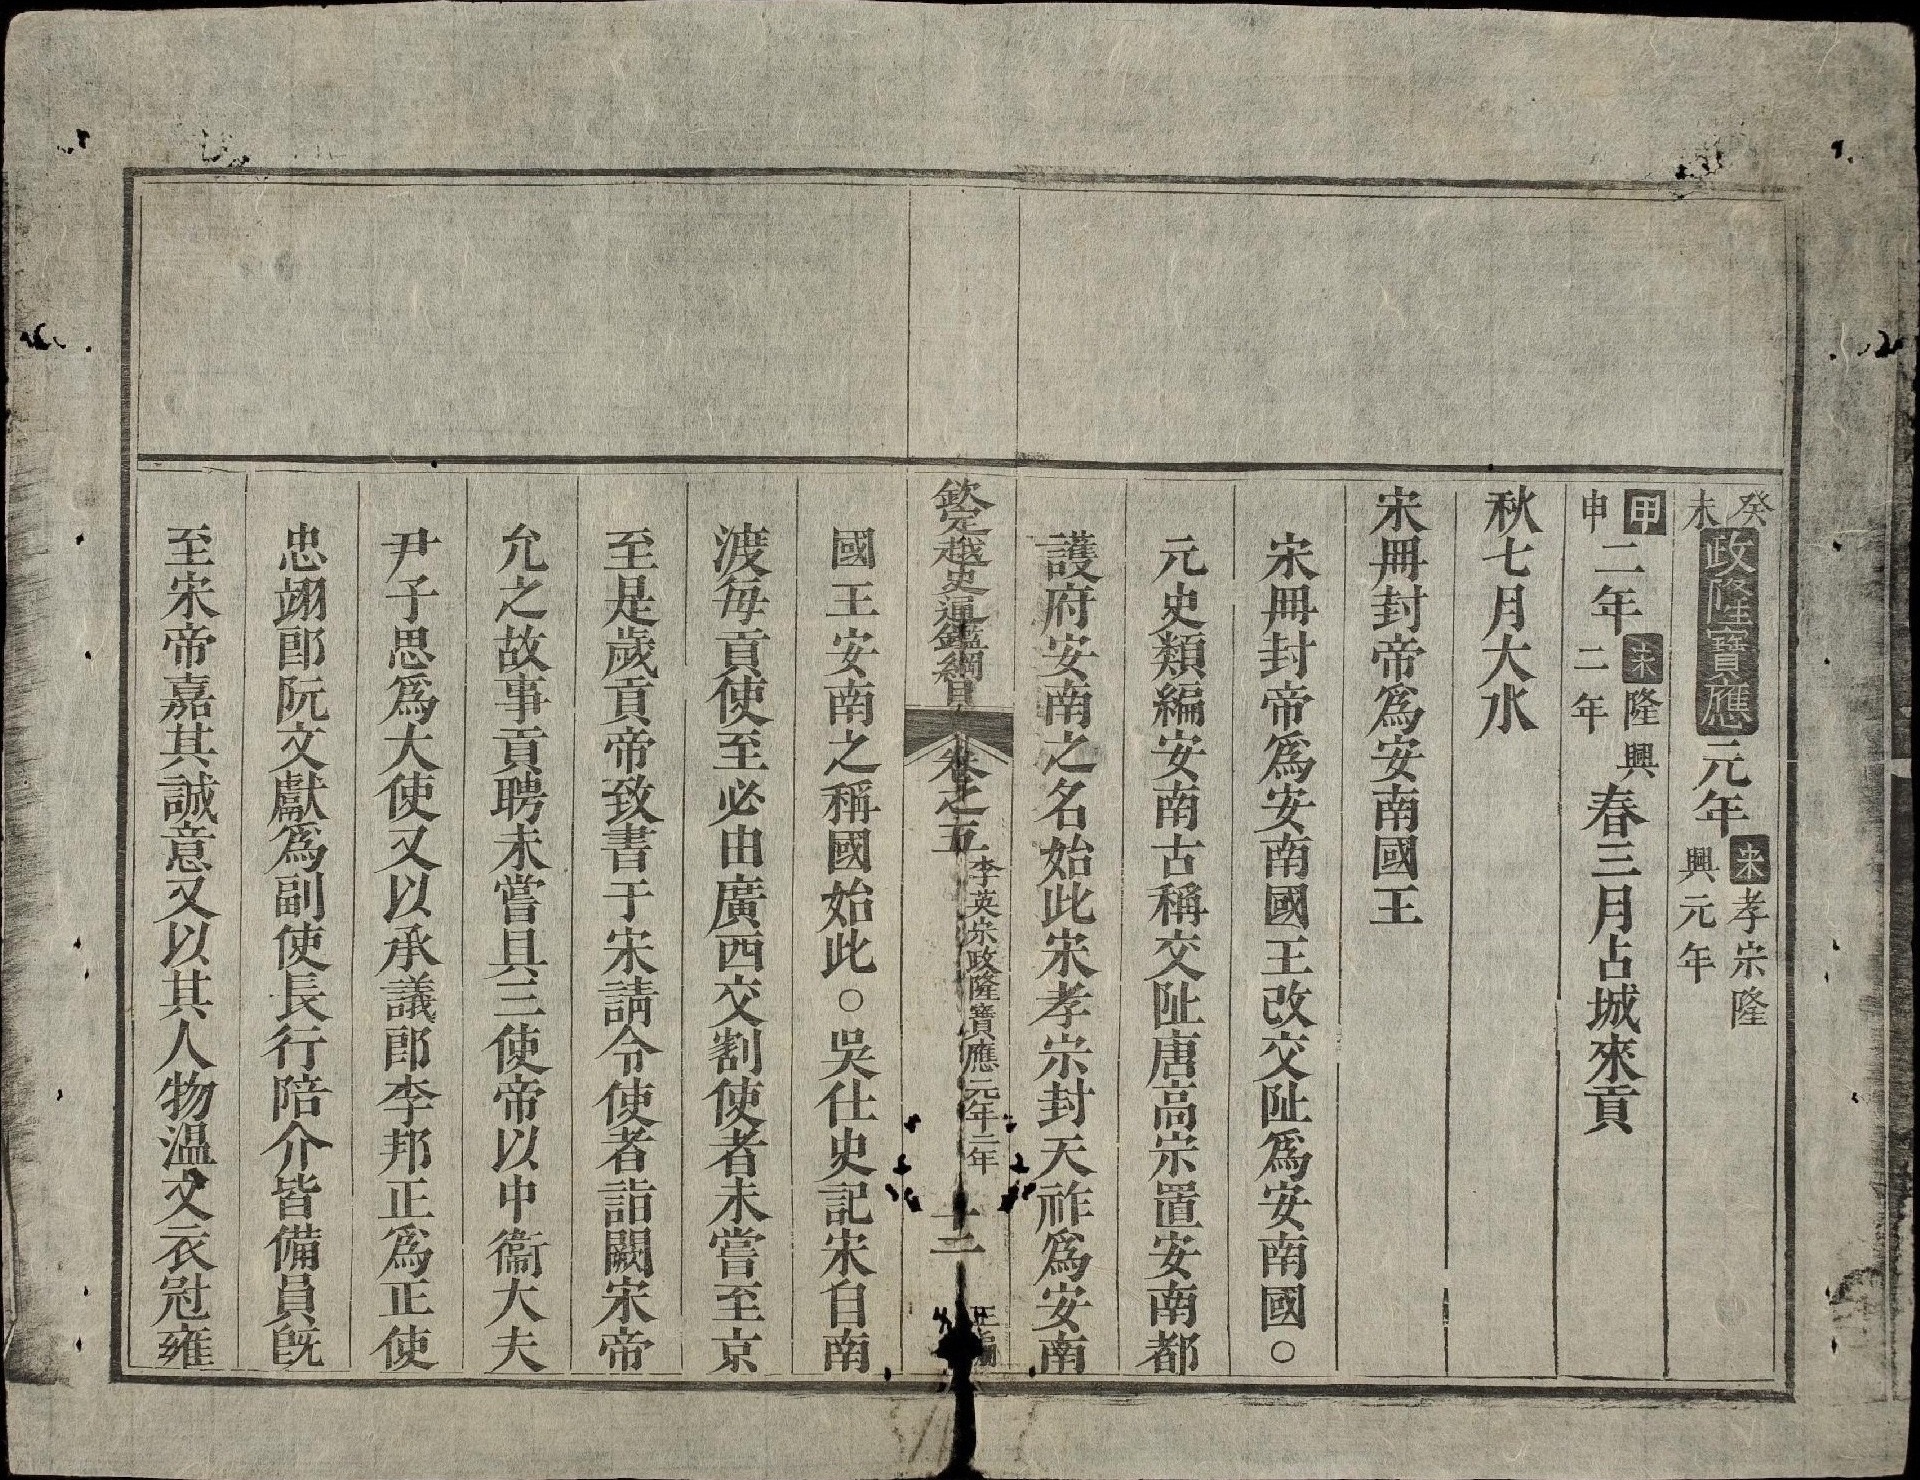 癸未政隆寶應元年宋孝宗隆興元年
甲申二年宋隆興二年春三月占城來貢
秋七月大水
宋冊封帝爲安南國王
宋冊封帝爲安南國王改交阯爲安南國○
元史類編安南古稱交阯唐高宗置安南都
護府安南之名始此宋孝宗封天祚爲安南
欽定越史通鑑綱目卷之五 李英宗政隆寶應元年二年 十二 正編
國王安南之稱國始此○吳仕史記宋自南
渡每貢使至必由廣西交割使者未嘗至京
至是歲貢帝致書于宋請令使者詣闕宋帝
允之故事貢聘未嘗具三使帝以中衞大夫
尹子思爲大使又以承議郎李邦正爲正使
忠翊郎阮文獻爲副使長行陪介皆備員旣
至宋帝嘉其誠意又以其人物温文衣冠雍